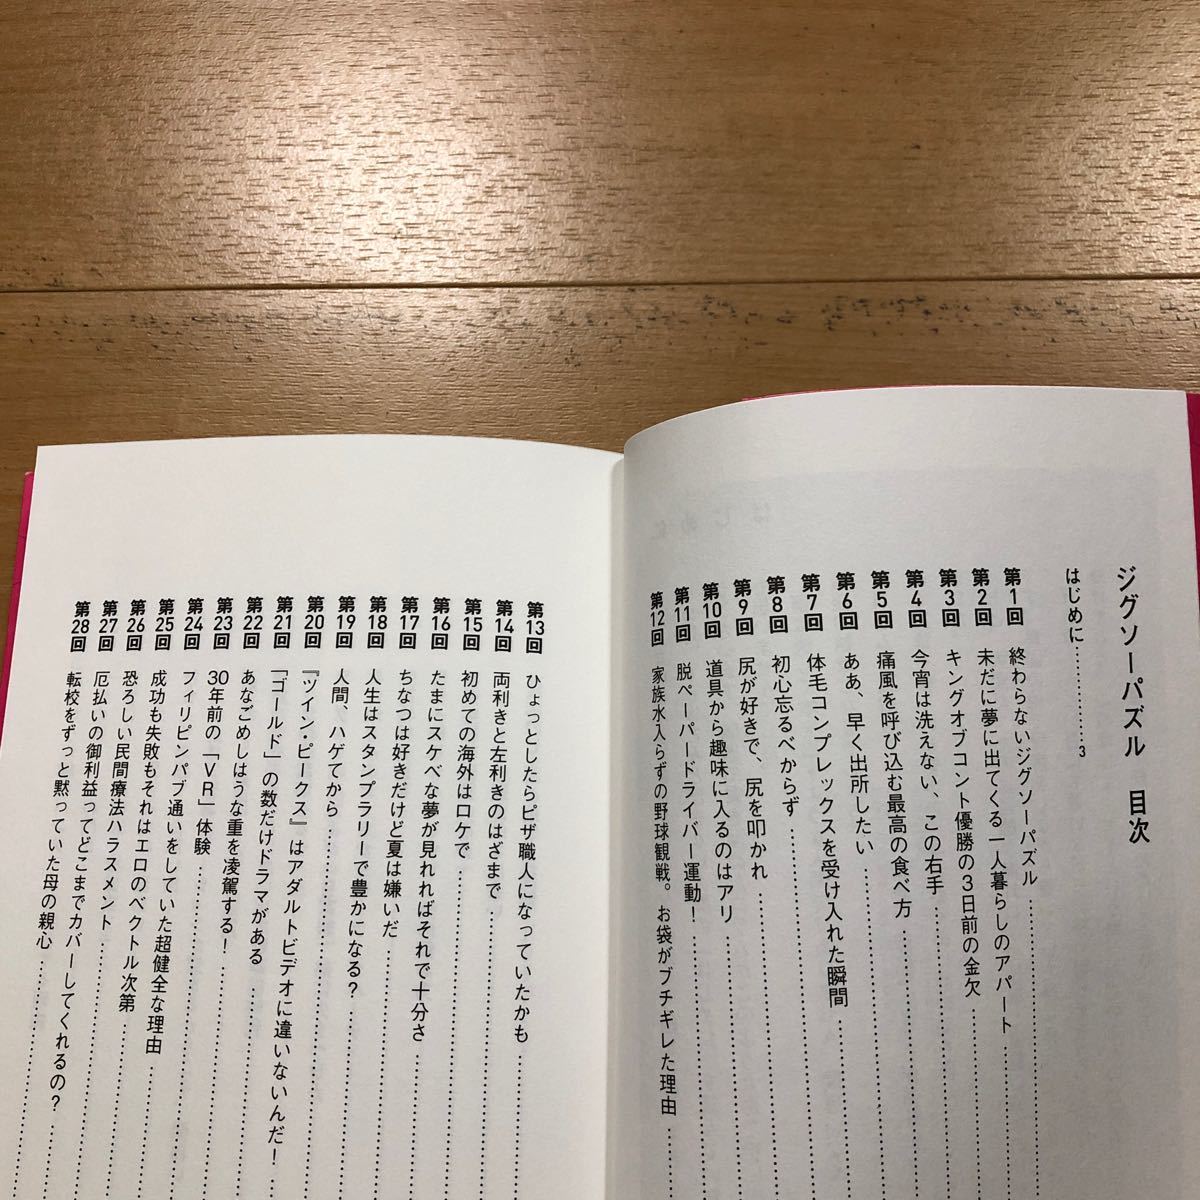 ジグソーパズル 目次
はじめに…………3
第1回 終わらないジグソーパズル
第2回 未だに夢に出てくる一人暮らしのアパート
第3回 キングオブコント優勝の3日前の金欠
第4回 今宵は洗えない、この右手
第5回 痛風を呼び込む最高の食べ方
第6回 ああ、早く出所したい
第7回 体毛コンプレックスを受け入れた瞬間
第8回 初心忘るべからず
第9回 尻が好きで、尻を叩かれ
第10回 道具から趣味に入るのはアリ
第11回 脱ペーパードライバー運動!
第12回 家族水入らずの野球観戦。お袋がブチギレた理由
第13回 ひょっとしたらピザ職人になっていたかも
第14回 両利きと左利きのはざまで
第15回 初めての海外はロケで
第16回 たまにスケベな夢が見れればそれで十分さ
第17回 ちなつは好きだけど夏は嫌いだ
第18回 人生はスタンプラリーで豊かになる?
第19回 人間、ハゲてから
第20回 『ツイン・ピークス』はアダルトビデオに違いないんだ!
第21回 「ゴールド」の数だけドラマがある
第22回 あなごめしはうな重を凌駕する!
第23回 30年前の「VR」体験
第24回 フィリピンパブ通いをしていた超健全な理由
第25回 成功も失敗もそれはエロのベクトル次第
第26回 恐ろしい民間療法ハラスメント
第27回 厄払いの御利益ってどこまでカバーしてくれるの?
第28回 転校をずっと黙っていた母の親心